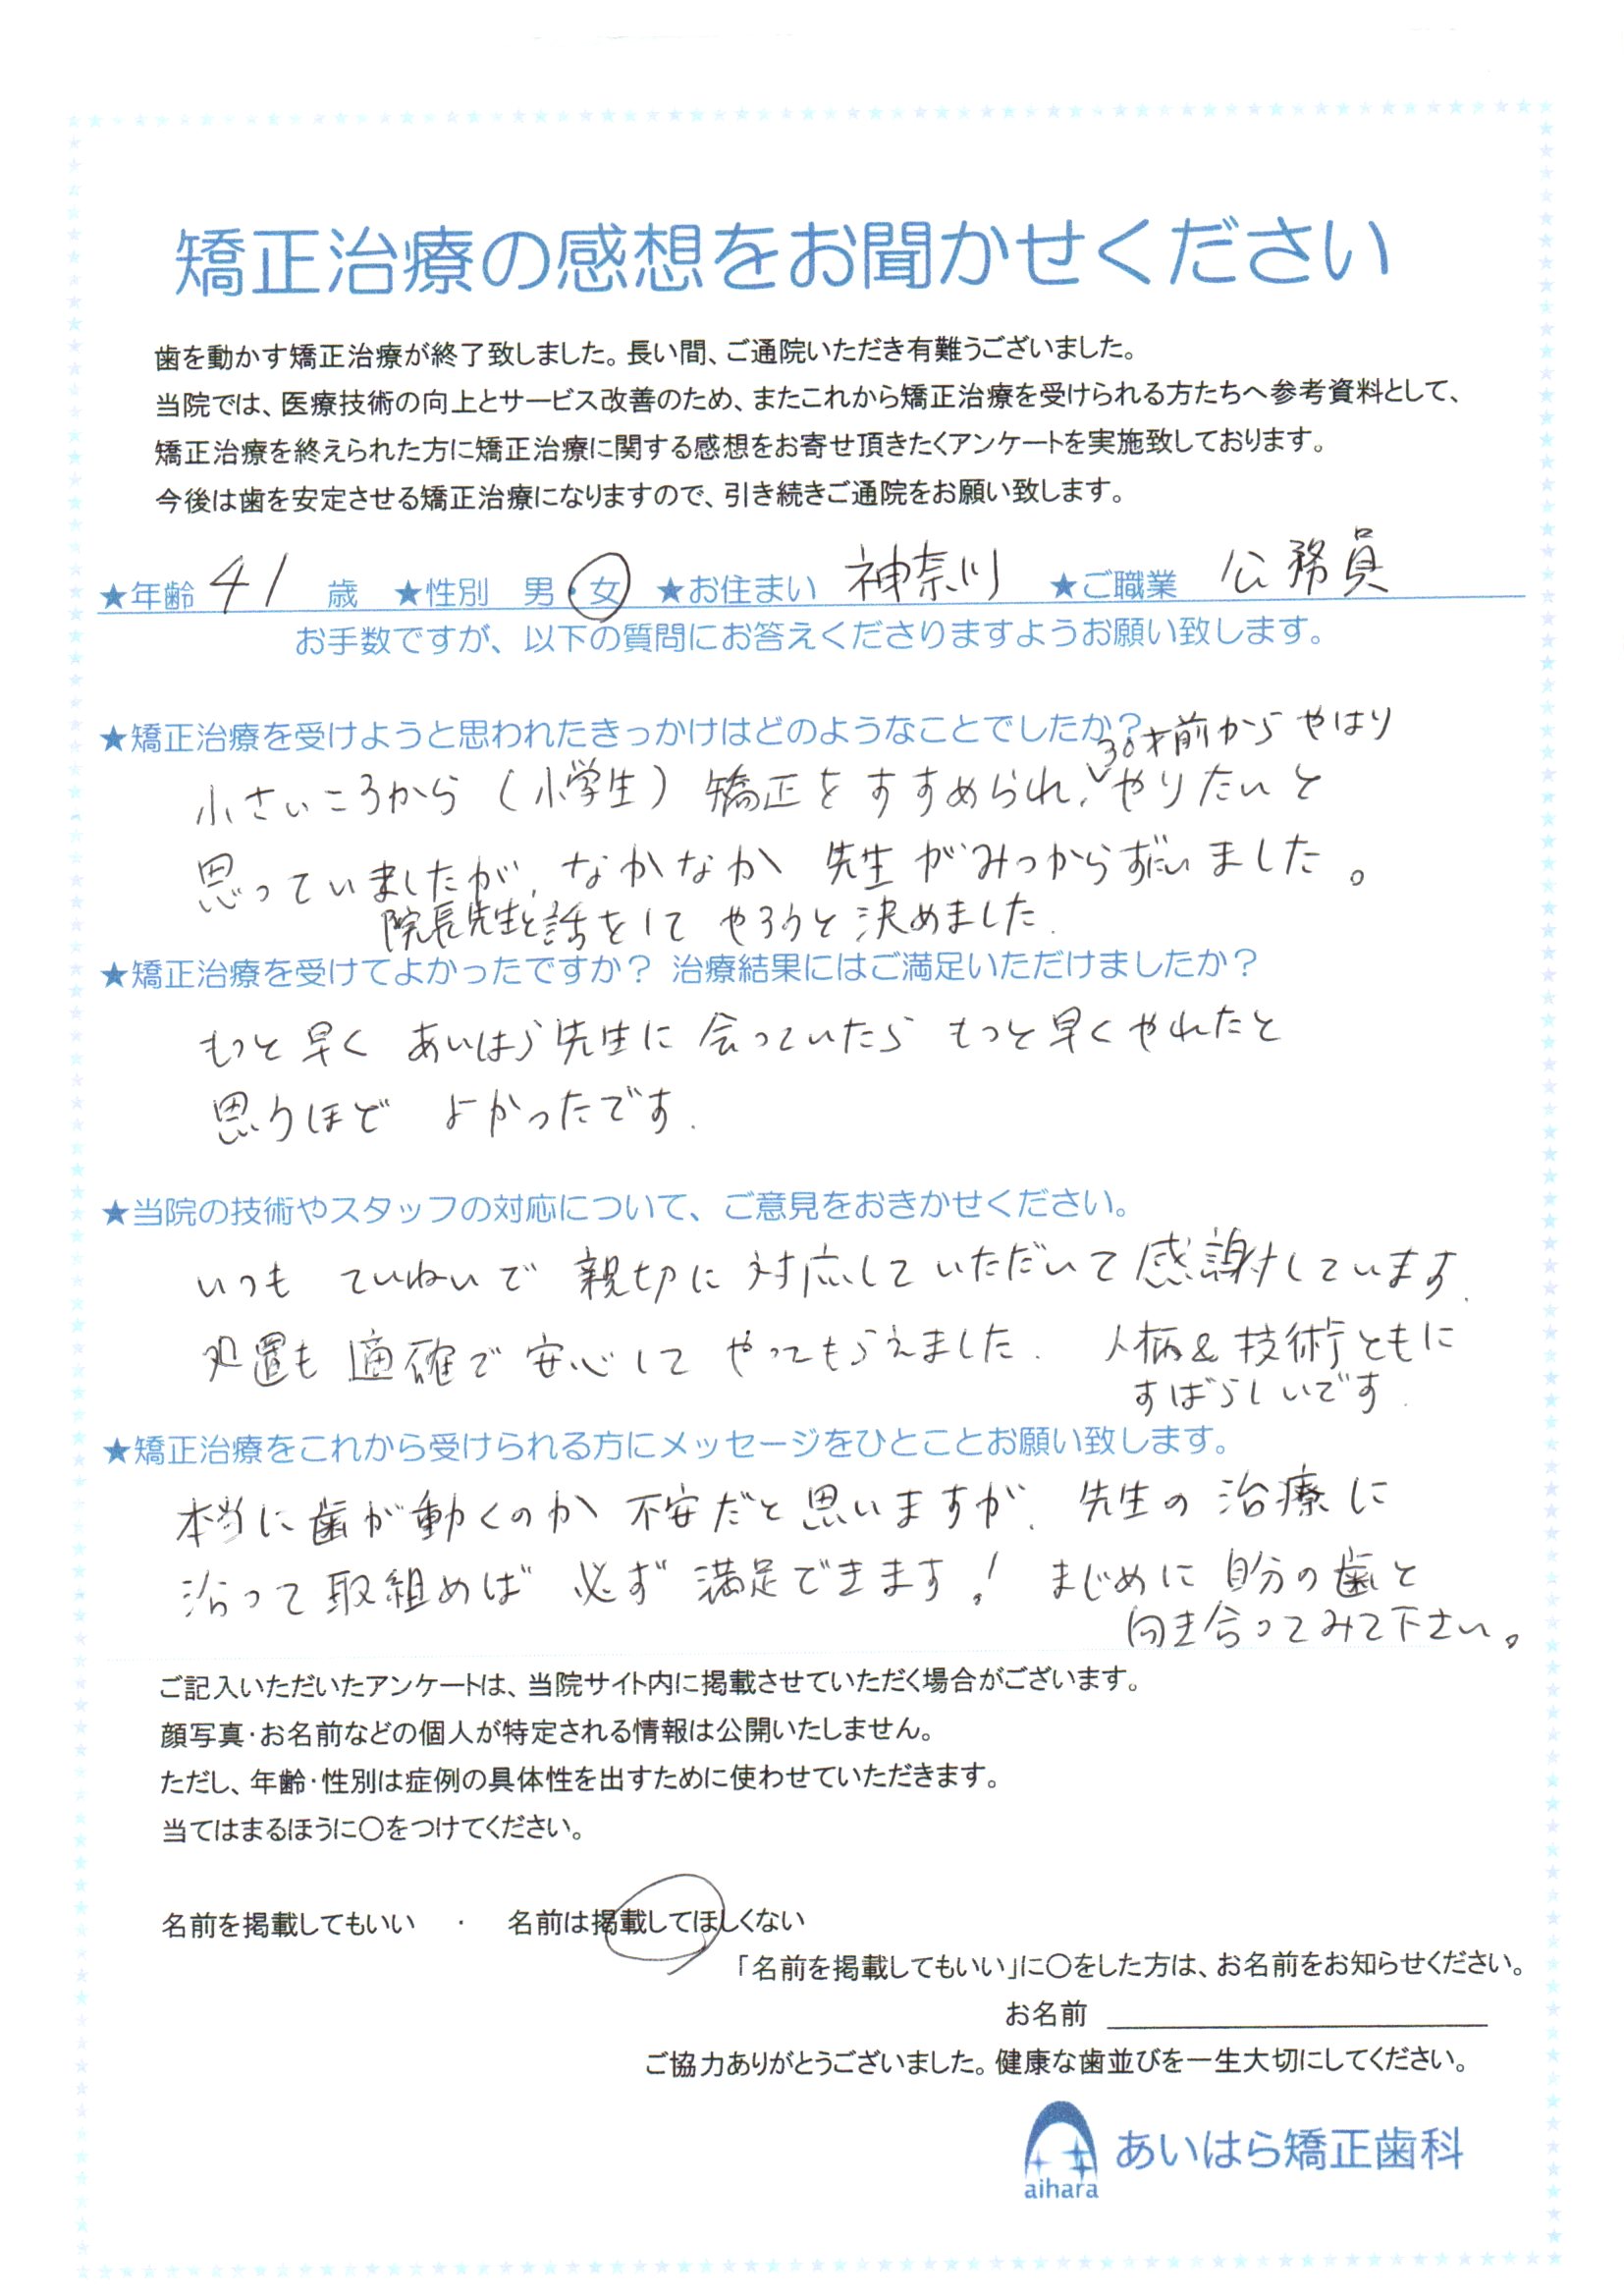 矯正治療の感想をお聞かせください
歯を動かす矯正治療が終了致しました。長い間、ご通院いただき有難うございました。
当院では、医療技術の向上とサービス改善のため、またこれから矯正治療を受けられる方たちへ参考資料として、
矯正治療を終えられた方に矯正治療に関する感想をお寄せ頂きたくアンケートを実施致しております。
今後は歯を安定させる矯正治療になりますので、引き続きご通院をお願い致します。
★年齢 41 歳 ★性別 男・女 ★お住まい 神奈川 ★ご職業 公務員
お手数ですが、以下の質問にお答えくださりますようお願い致します。
★矯正治療を受けようと思われたきっかけはどのようなことでしたか?
30才前から やはり
小さいころから (小学生) 矯正をすすめられ、やりたいと
思っていましたが、なかなか 先生がみつからずにいました。
院長先生と話をして やろうと決めました.
★矯正治療を受けてよかったですか? 治療結果にはご満足いただけましたか?
もっと早く あいはら先生に 会っていたら もっと早くやれたと
思うほど よかったです.
★当院の技術やスタッフの対応について、ご意見をおきかせください。
いつも ていねいで 親切に 対応していただいて感謝しています.
処置も 適確で 安心して やってもらえました. 人柄&技術ともに
すばらしいです.
★矯正治療をこれから受けられる方にメッセージをひとことお願い致します。
本当に歯が動くのか 不安だと思いますが、先生の治療に
沿って取組めば 必ず満足できます! まじめに自分の歯と
向き合ってみて下さい。
ご記入いただいたアンケートは、当院サイト内に掲載させていただく場合がございます。
顔写真・お名前などの個人が特定される情報は公開いたしません。
ただし、年齢・性別は症例の具体性を出すために使わせていただきます。
当てはまるほうに○をつけてください。
名前を掲載してもいい ・ 名前は掲載してほしくない
「名前を掲載してもいい」に○をした方は、お名前をお知らせください。
お名前
ご協力ありがとうございました。健康な歯並びを一生大切にしてください。
あいはら矯正歯科
aihara